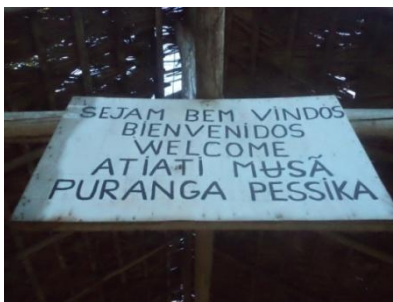 SEJAM BEM VINDOS
BIENVENIDOS
WELCOME
ATIATI MɄSÃ
PURANGA PESSIKA